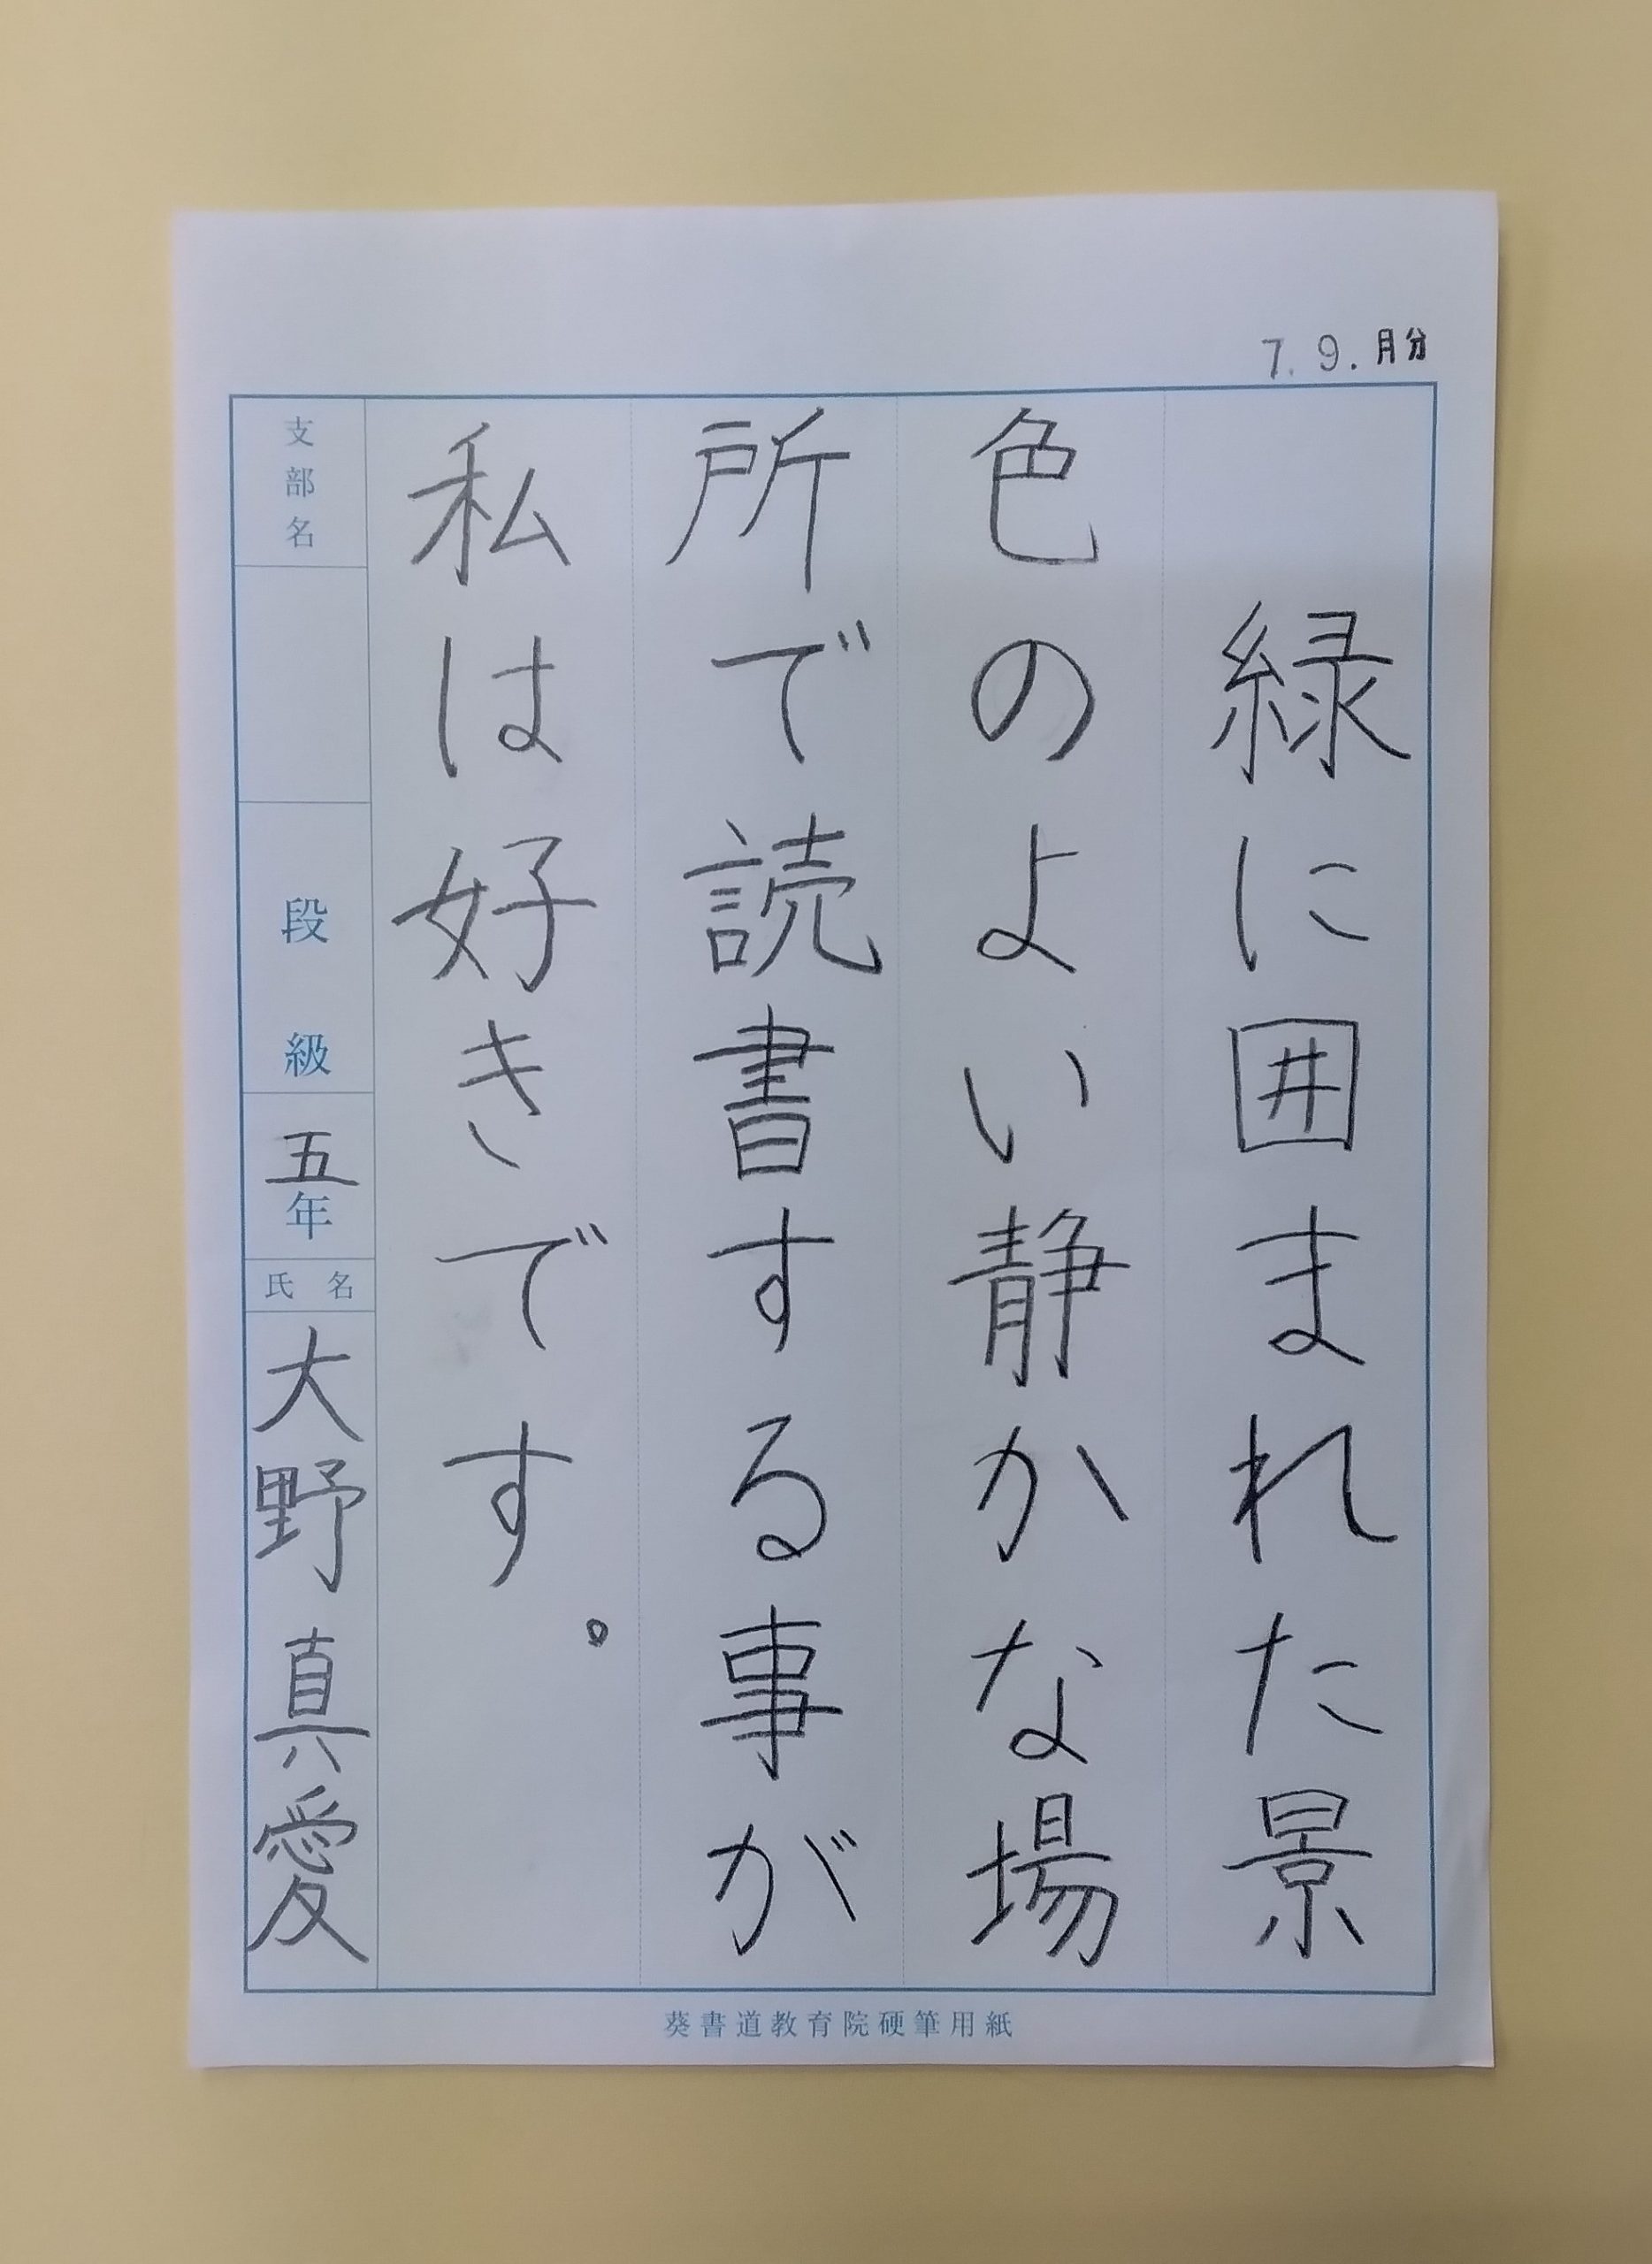 7.9.月分
緑に囲まれた景
色のよい静かな場
所で読書する事が
私は好きです。
支部名
段級
五年
氏名
大野真愛
葵書道教育院硬筆用紙